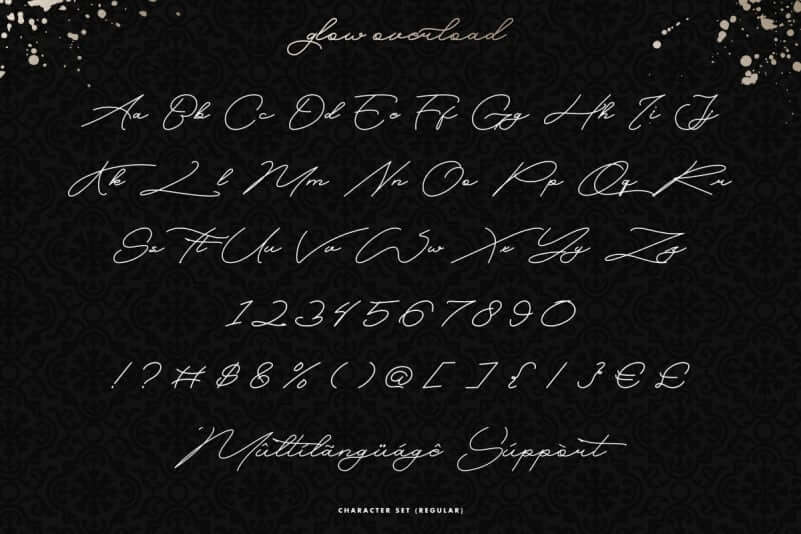 glow overload
Aa Bb Cc Dd Ee Ff Gg Hh Ii Jj
Kk Ll Mm Nn Oo Pp Qq Rr
Ss Tt Uu Vv Ww Xx Yy Zz
1234567890
!?#$&%()@[]{/}€£
Mûltílãngüágê Súppòrt
CHARACTER SET (REGULAR)